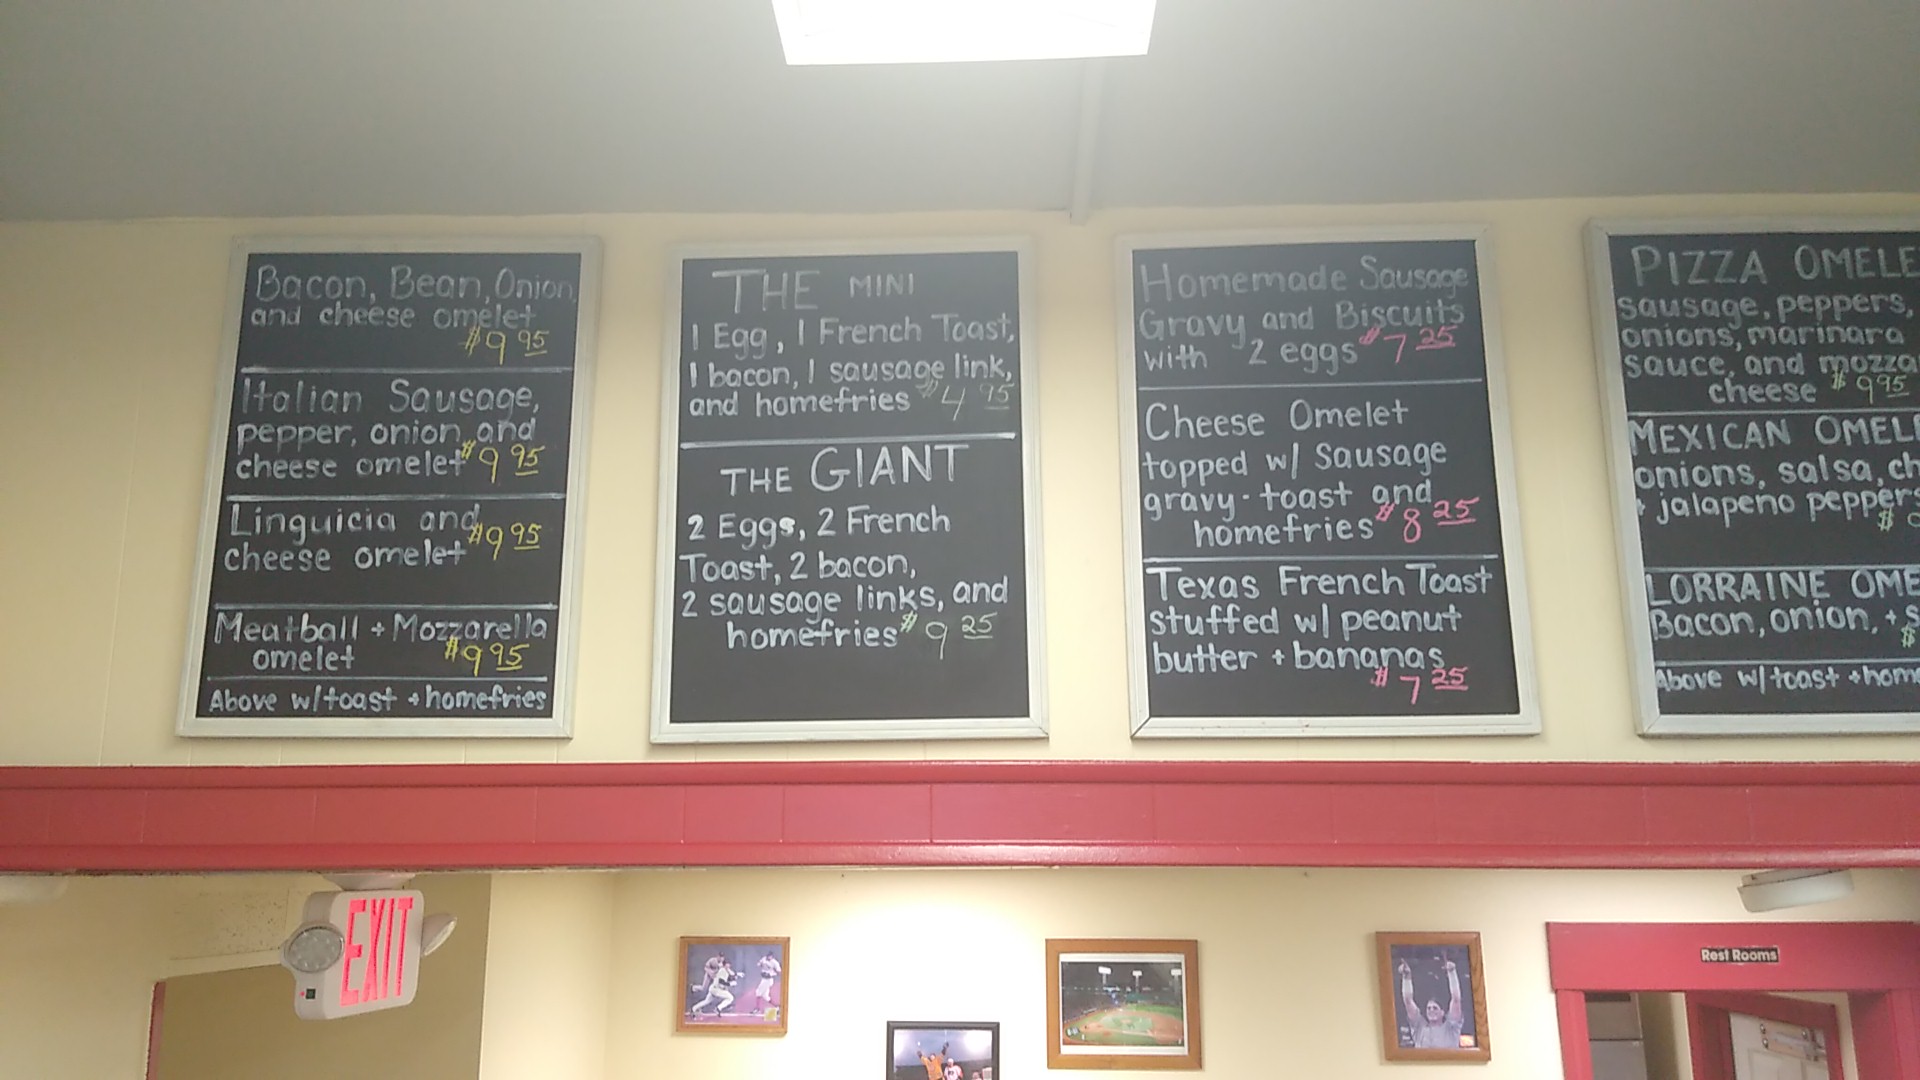 Bacon, Bean, Onion,
and cheese omelet
$9 95
Italian Sausage,
pepper, onion and
cheese omelet $9 95
Linguicia and
cheese omelet $9 95
Meatball + Mozzarella
omelet $9 95
Above w/toast + homefries
THE MINI
1 Egg, 1 French Toast,
1 bacon, 1 sausage link,
and homefries $4 95
THE GIANT
2 Eggs, 2 French
Toast, 2 bacon,
2 sausage links, and
homefries $9 25
Homemade Sausage
Gravy and Biscuits
with 2 eggs $7 25
Cheese Omelet
topped w/ Sausage
gravy - toast and
homefries $8 25
Texas French Toast
stuffed w/ peanut
butter + bananas
$7 25
PIZZA OMELE
sausage, peppers,
onions, marinara
sauce, and mozza
cheese $9 95
MEXICAN OMEL
onions, salsa, ch
+ jalapeno peppers
$
LORRAINE OME
Bacon, onion, + s
$
Above w/toast + hom
EXIT
Rest Rooms